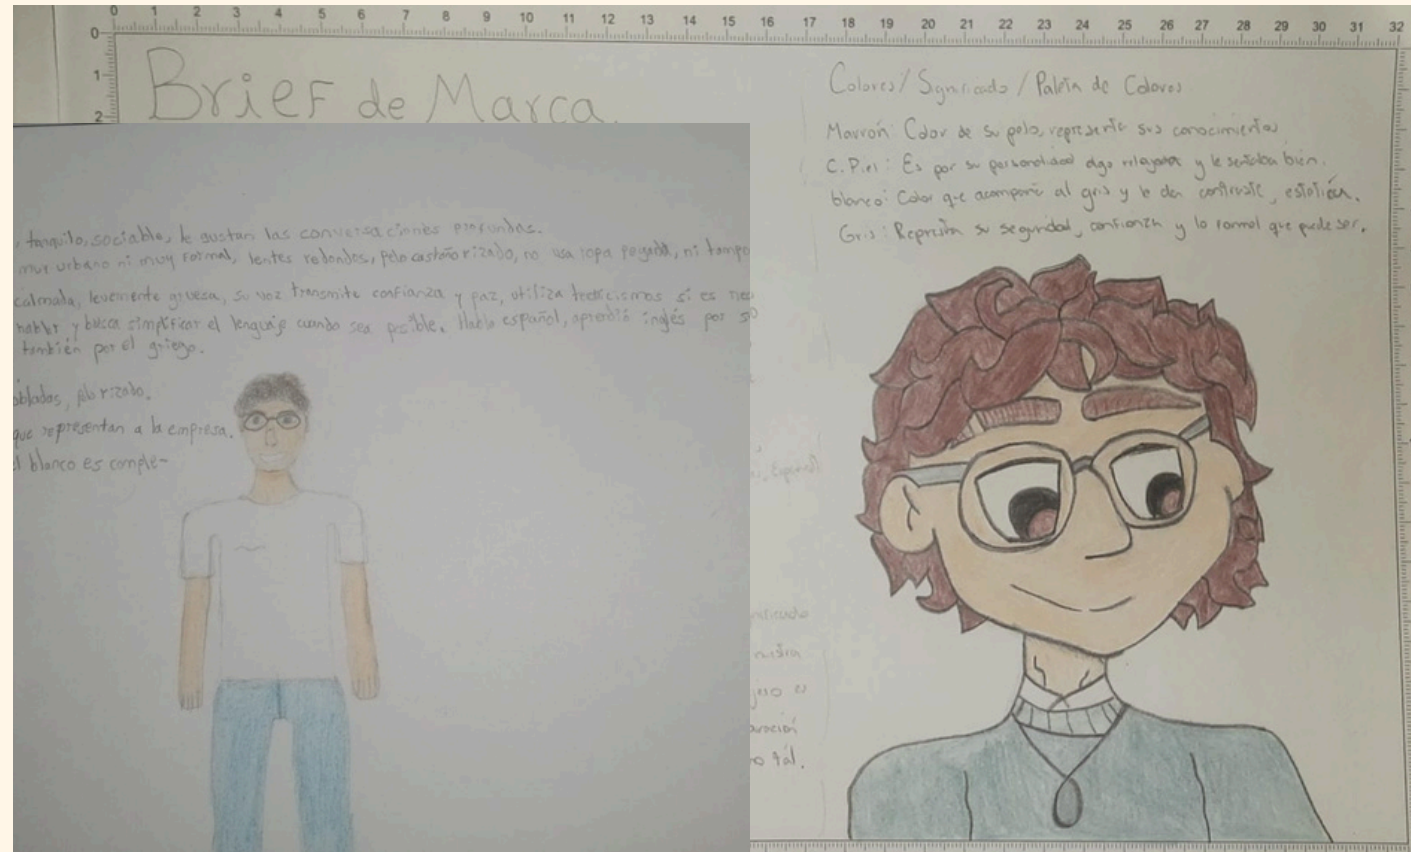 0 1 2 3 4 5 6 7 8 9 10 11 12 13 14 15 16 17 18 19 20 21 22 23 24 25 26 27 28 29 30 31 32
0
1
2
Brief de Marca.
, tranquilo, sociable, le gustan las conversaciones profundas.
muy urbano ni muy formal, lentes redondos, pelo castaño rizado, no usa ropa pegada, ni tampo
calmada, levemente gruesa, su voz transmite confianza y paz, utiliza tecnicismos si es nec
hablar y busca simplificar el lenguaje cuando sea posible. Habla español, aprendió inglés por su
también por el griego.
obladas, pelo rizado.
que representan a la empresa.
el blanco es comple-
Colores / Significado / Paleta de Colores
Marrón: Color de su pelo, representa sus conocimientos
C. Piel: Es por su personalidad algo relajada y le sentaba bien.
blanco: Color que acompaña al gris y le da contraste,
Gris: Representa su seguridad, confianza y lo formal que puede ser.
Español
nificado
uestra
es
aración
tal.